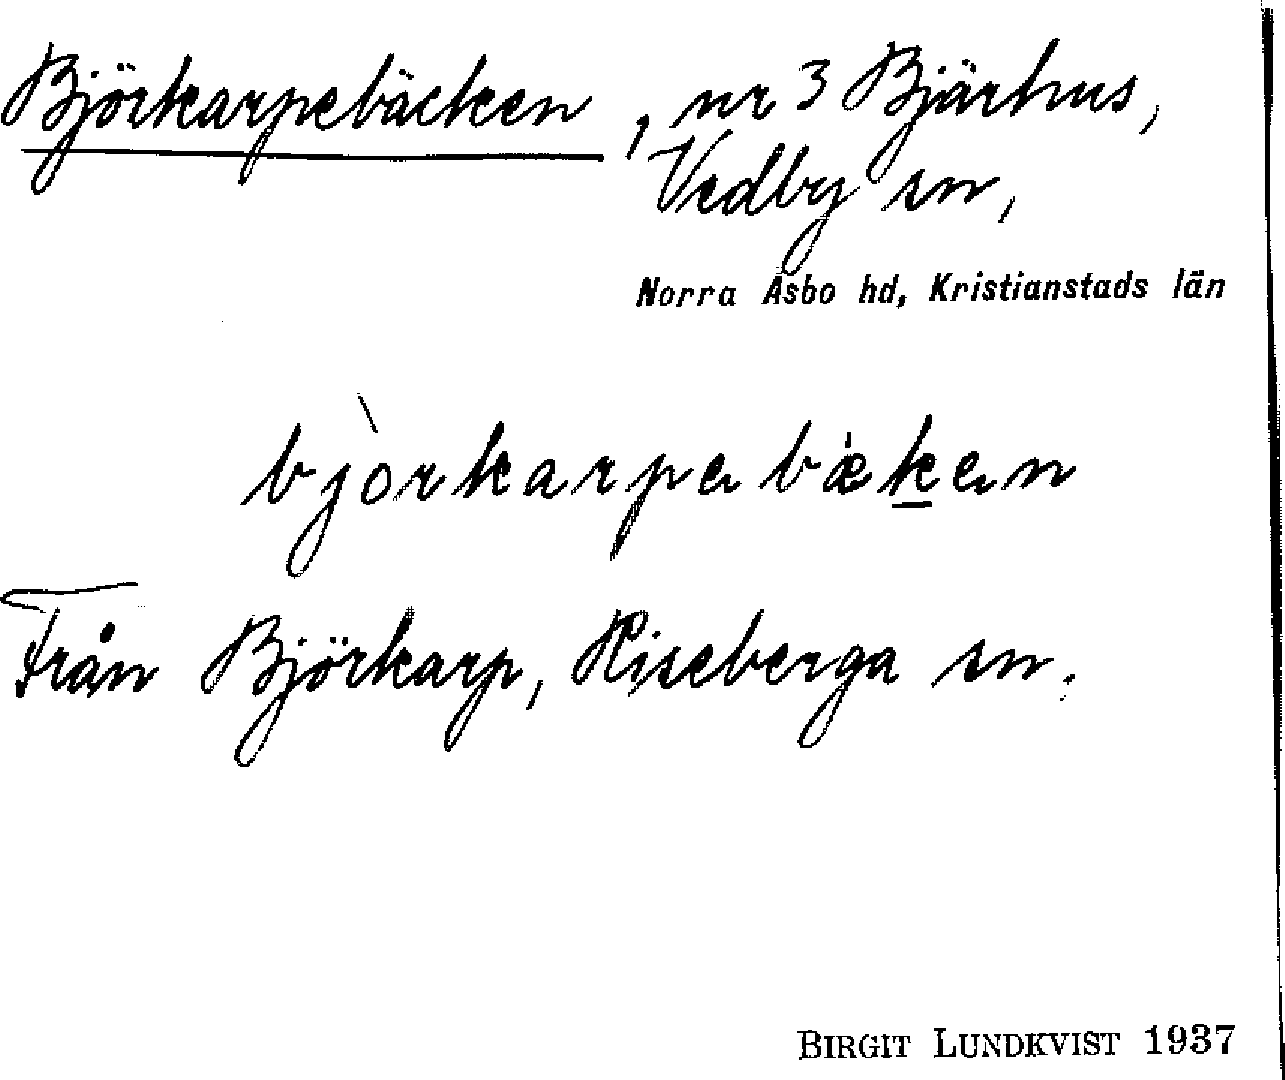 Björkarpebäcken, nr 3 Bjärhus,
Vedby sn,
Norra Åsbo hd, Kristianstads län
bjòrkarpebæken
Från Björkarp, Riseberga sn.
BIRGIT LUNDKVIST 1937